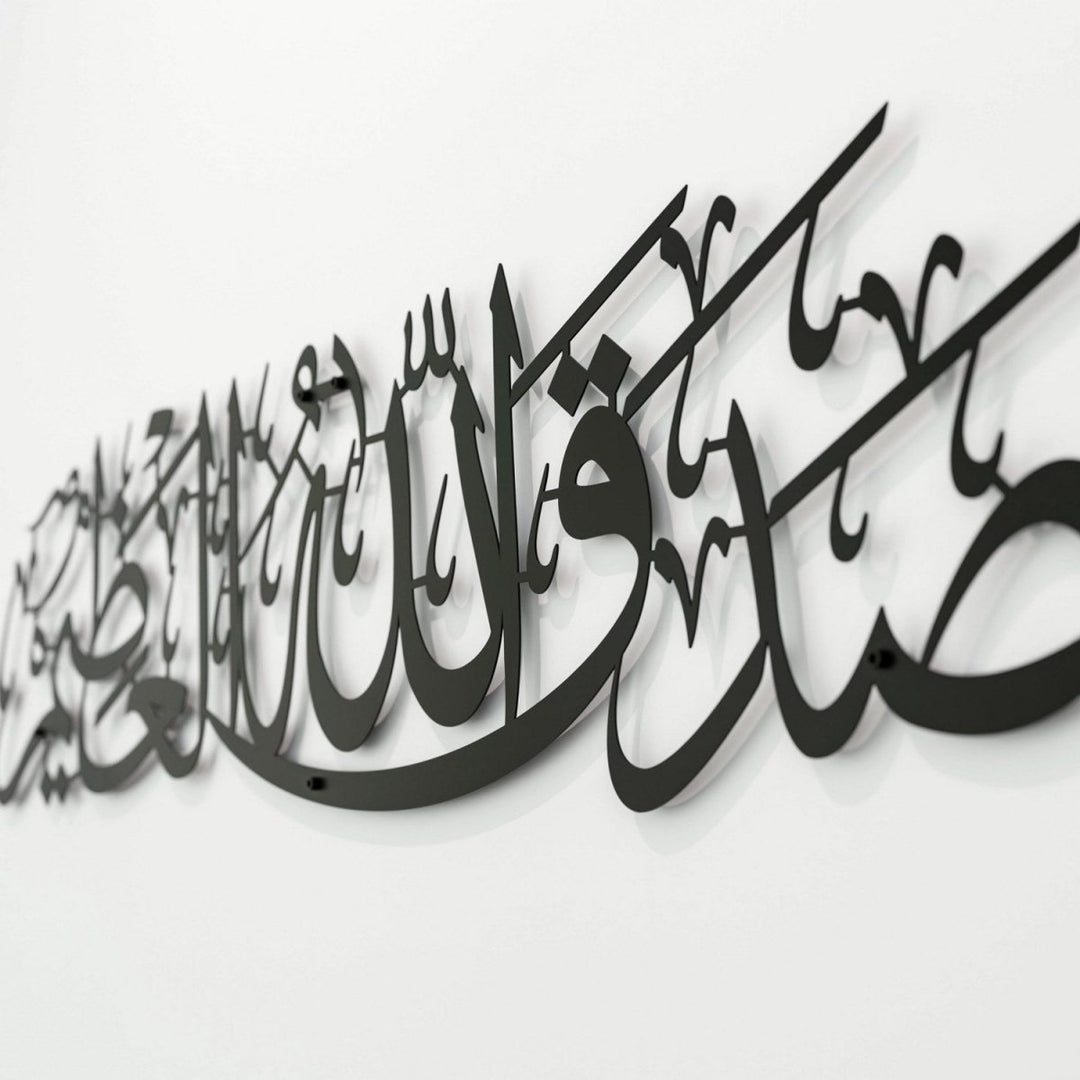 صدق الله العظيم